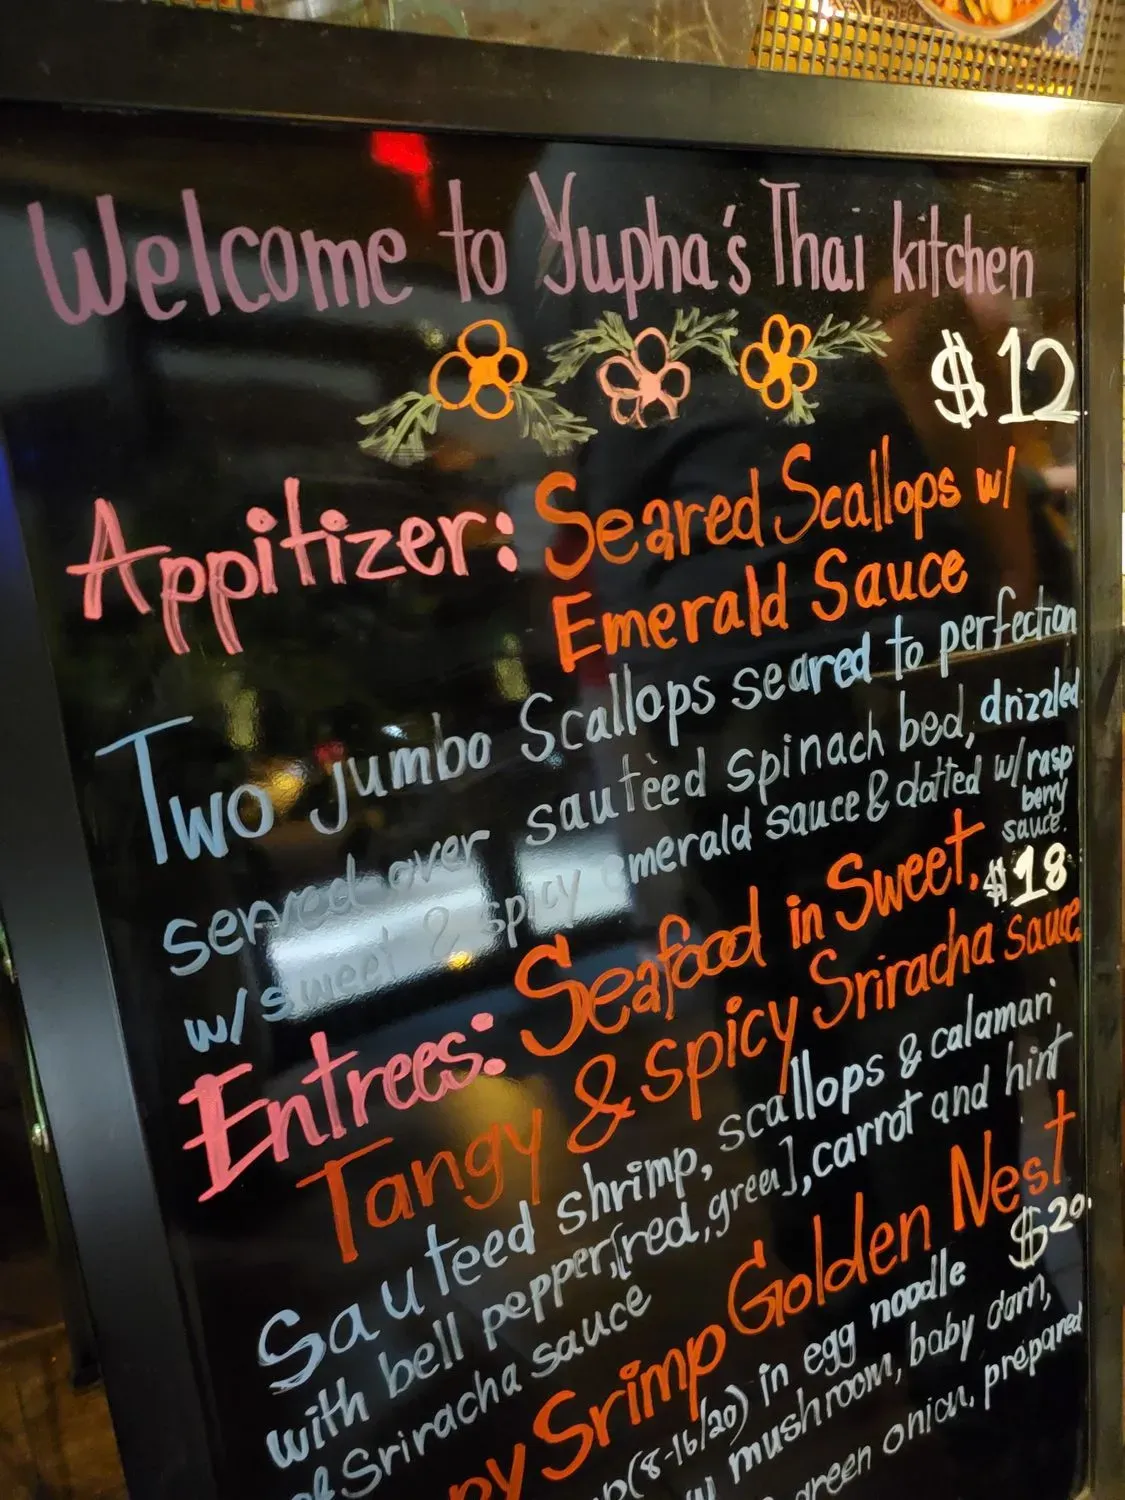 Welcome to Yupha's Thai kitchen
$12
Appitizer: Seared Scallops w/
Emerald Sauce
Two jumbo Scallops seared to perfection
served over sautèed spinach bed, drizzled
w/ sweet & spicy emerald sauce & dotted w/ rasp
berry
sauce.
$18
Entrees: Seafood in Sweet,
Tangy & spicy Sriracha sauce
Sauteed shrimp, scallops & calamari
with bell pepper,[red, green], carrot and hint
of Sriracha sauce
Srimp Golden Nest
$20.
(8-16/20) in egg noodle
mushroom, baby corn,
green onion, prepared